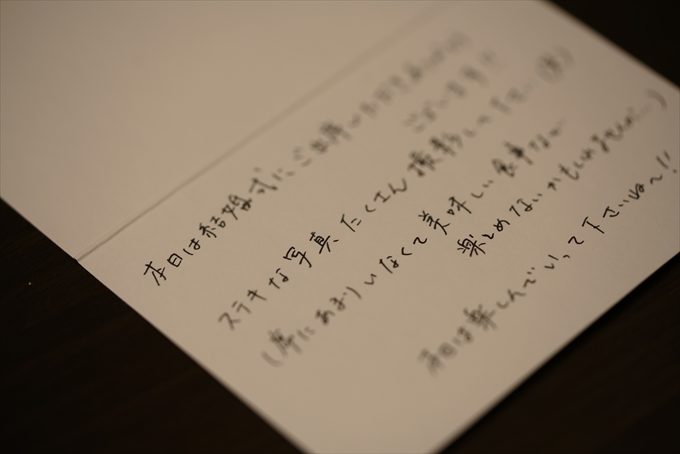 本日は結婚式にご出席いただきありがとう
ございます!!
ステキな写真たくさん撮影して下さい(笑)
(席にあまりいなくて美味しい食事なか
楽しめないかもしれませんが…)
本日は楽しんでいって下さいね〜!!